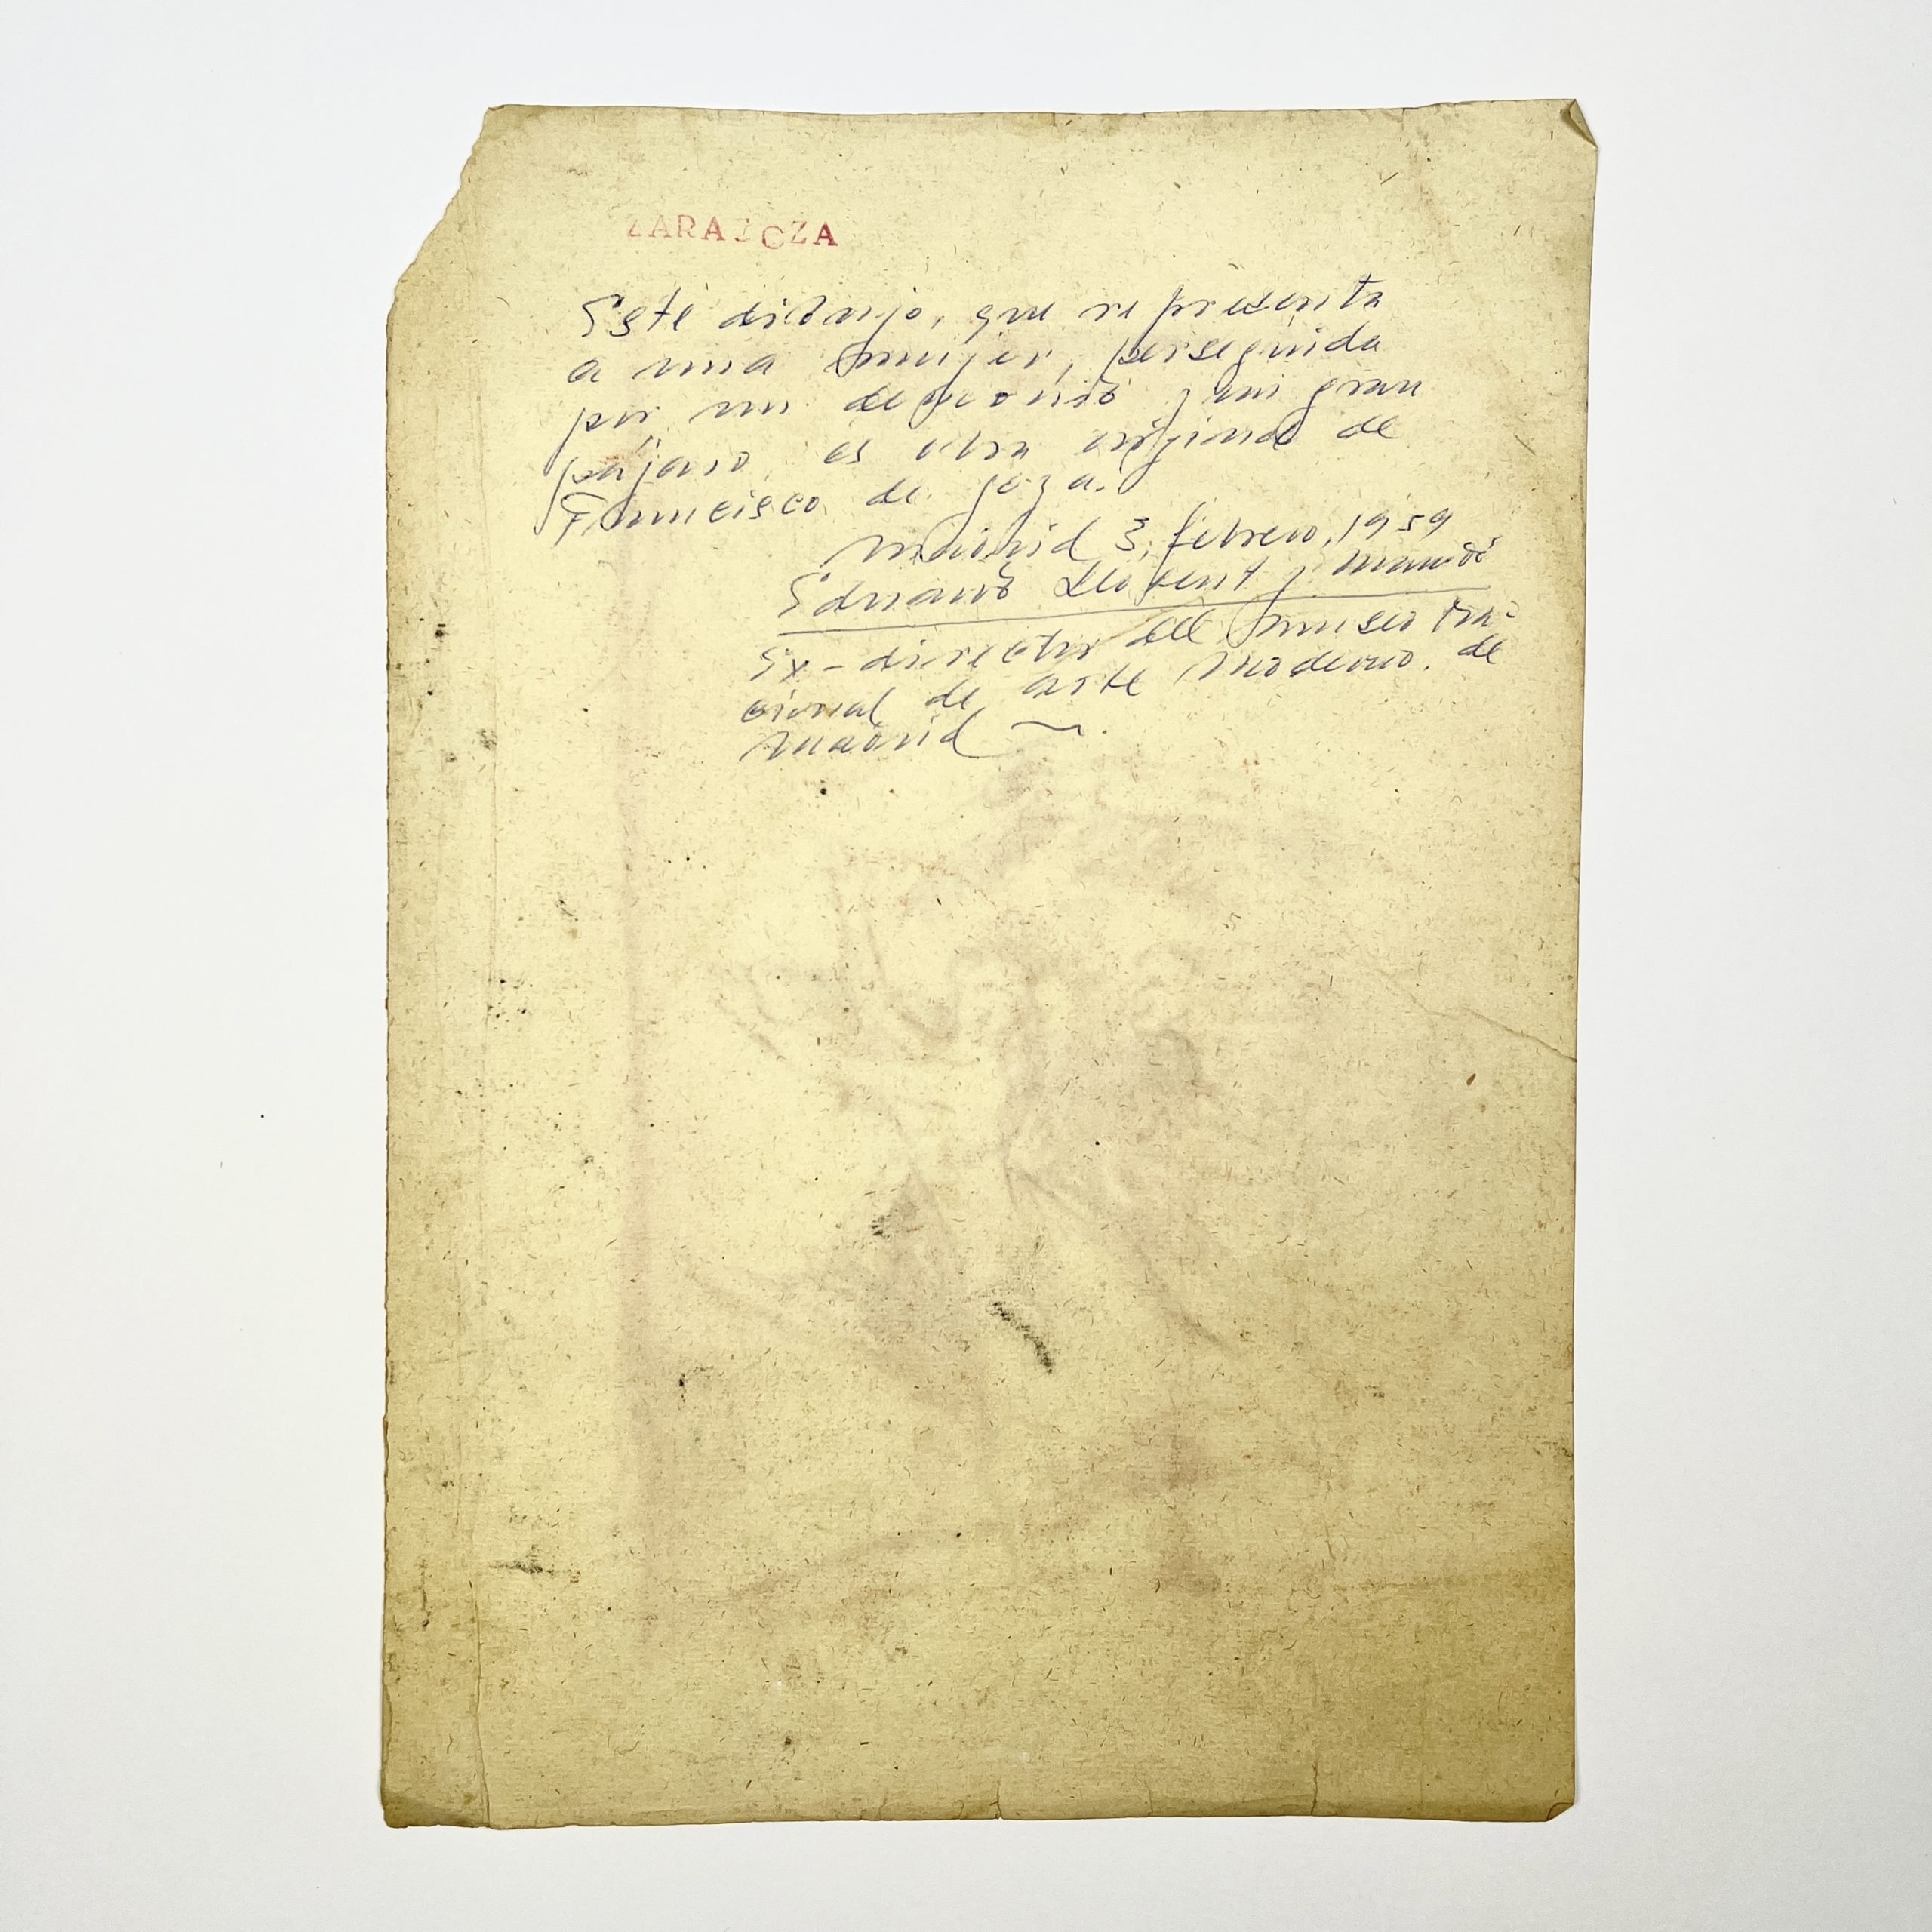 ZARAGOZA
Este dibujo, que representa
a una mujer, perseguida
por un demonio y un gran
pájaro es obra original de
Francisco de Goya.
Madrid 3, febrero, 1959
Eduardo Llosent y Marañón
Ex-director del Museo Na-
cional de Arte Moderno. de
Madrid